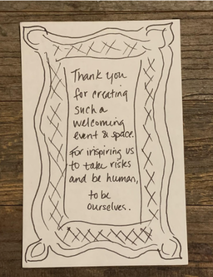 Thank you
for creating
such a
welcoming
event & space.
For inspiring us
to take risks
and be human,
to be
ourselves.